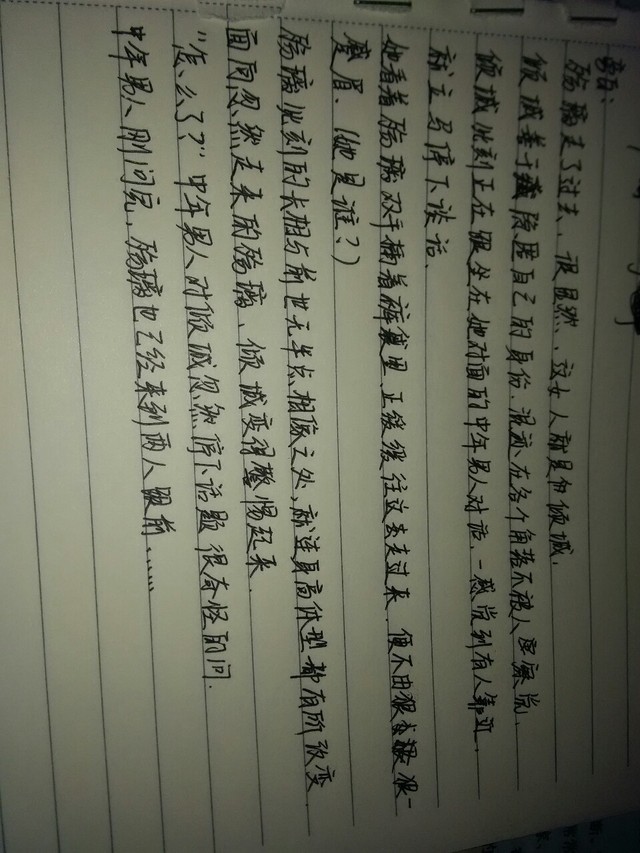 殇璃走了过去、很显然、这女人就是仲倾城、
倾城善于藏隐匿自己的身份、混迹、在各个角落不被人察觉、
倾城此刻正在跟坐在她对面的中年男人对话、一感觉到有人靠近、
就立马停下谈话、
她看着殇璃双手插着裤袋里、正缓缓往这边走过来、便不由狠狠一
蹙眉、(她是谁？)
殇璃此刻的长相与前世无半点相似之处、就连身高体型都有所改变
面向忽然走来的殇璃、倾城变得警惕起来、
"怎么了？"中年男人对倾城忽然停下话题很奇怪的问、
中年男人刚问完、殇璃也已经来到两人跟前......